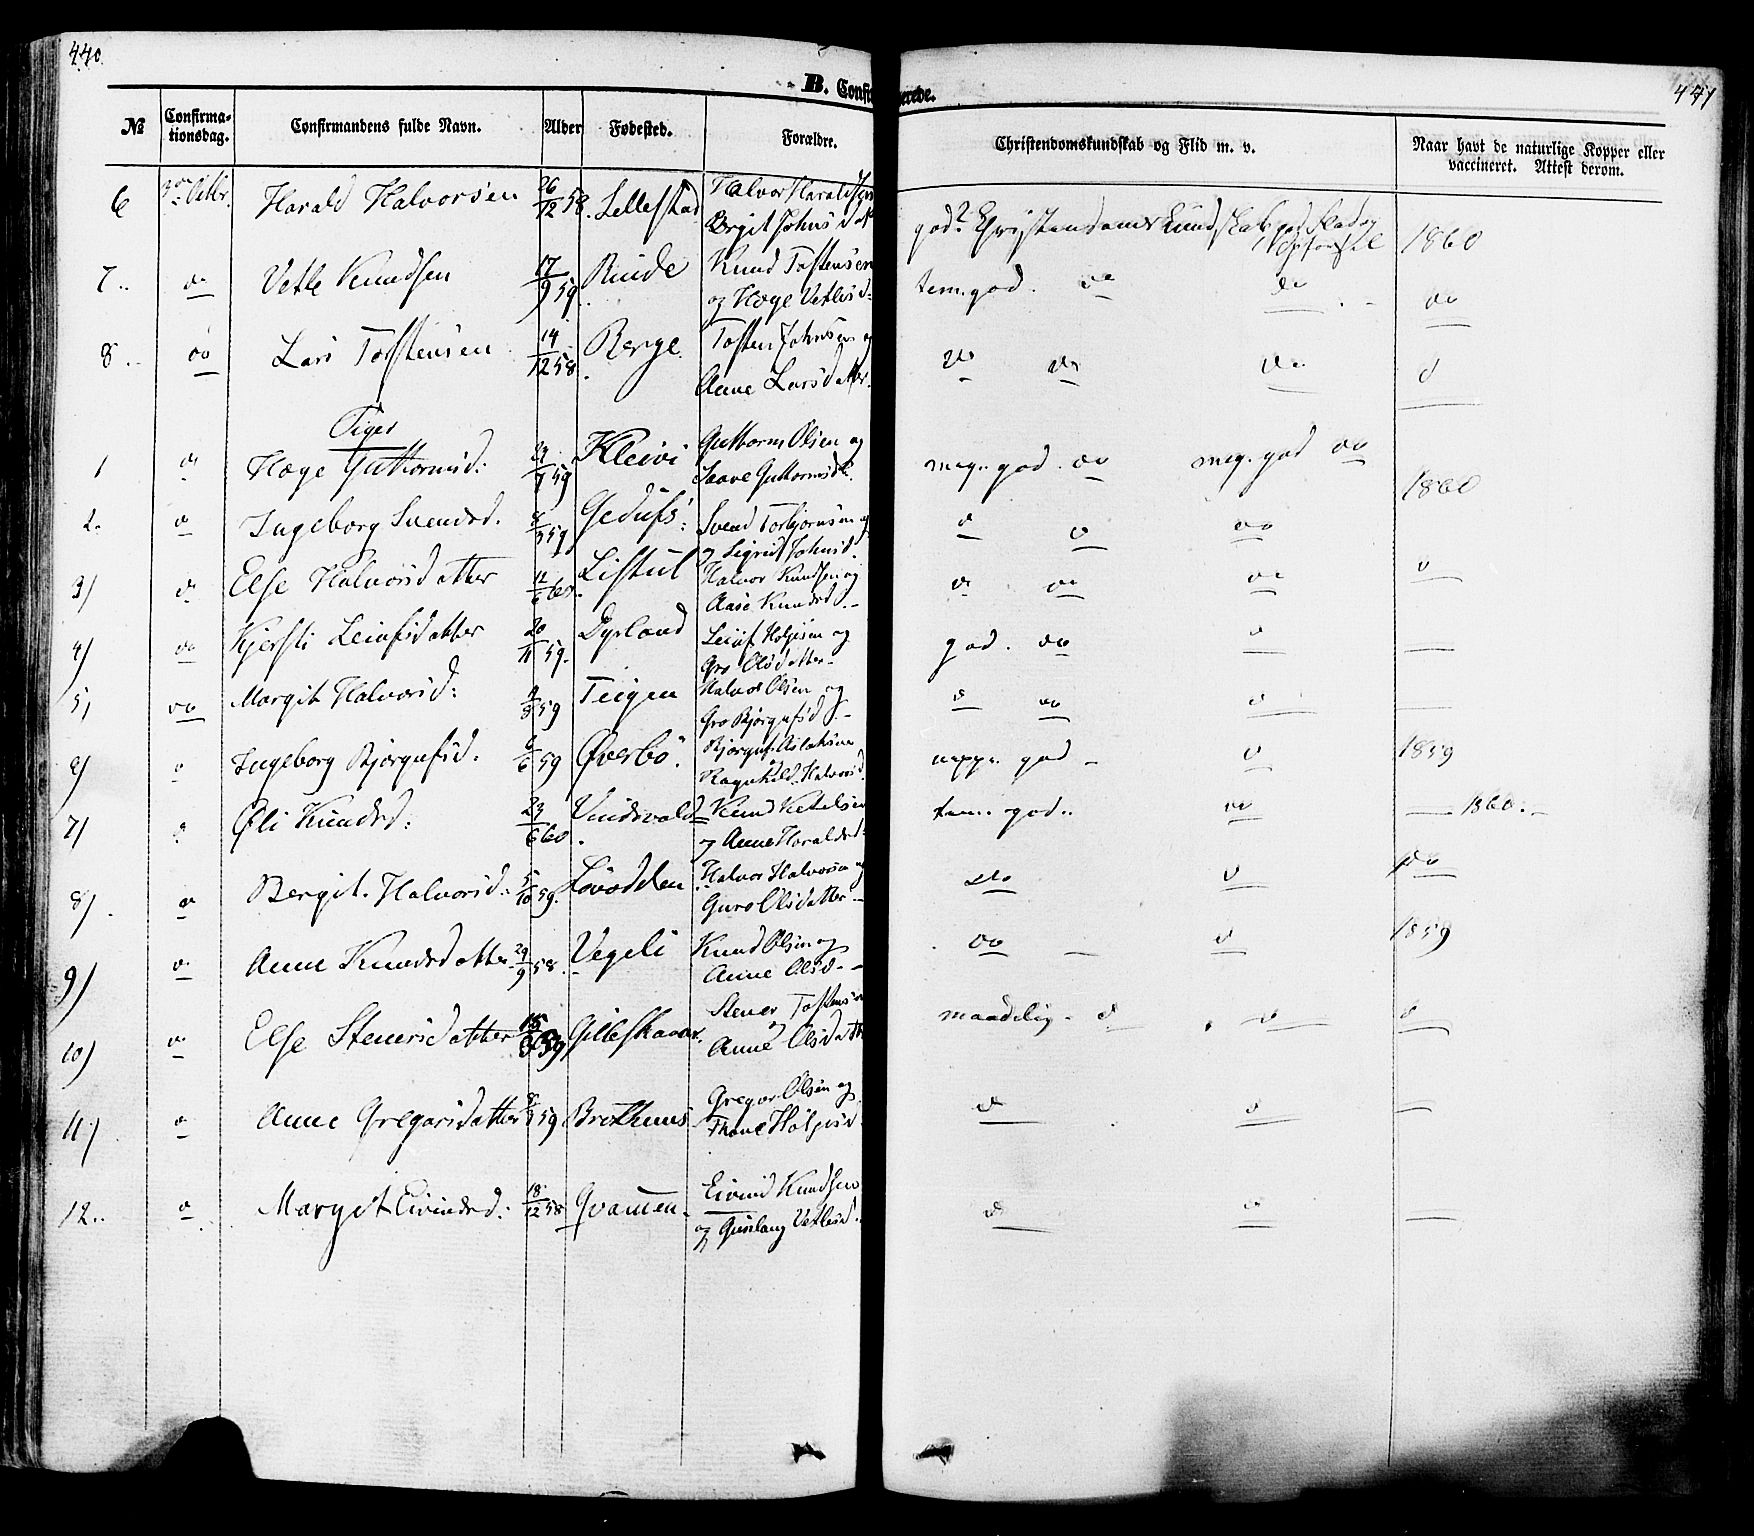 440.
441
B. Confirmerede.
№ Confirmationsdag. Confirmandens fulde Navn. Alder Fødested. Forældre. Christendomskundskab og Flid m. v. Naar havt de naturlige Kopper eller vaccineret. Attest derom.
6 Harald Halvorsen 26/12 58. Halvor Haraldsen
Birgit Johnsdat god Christendomskundskab god 1860
7.. do Vetle Knudsen 17/9 59. Rinde Knud Tostensen
og Hæge Vetlesd: tem. god. do do do
8.. do Lars Torstensen 14/12 58. Berge. Tosten Johnsen og
Anne Larsdatter. do do do d
Piger
1 d Hæge Guttormsd: 59 Kleivi Guttorm Olsen og
Saave Guttormsd. meg. god. do meg. god do 1860
2. d Ingeborg Svendsd. 59 Svend Torbjørnsen og
Sigrid Johnsd. d d do
3) d Else Halvorsdatter Listul Halvor Knudsen og
Aase Knudsd. d do do d
4) do Kjersti Leiufsdatter 20/11 59. Dyrland Leiuf Holjesen og
Gro Olsdatter god. do d —
5) do Margit Halvorsd: 59 Teigen Halvor Olsen og
Gro Bjørgufsd. d do d —
6) d Ingeborg Bjørgufsd. 59 Øverbö. Bjørguf Aslaksen
Ragnhild Halvorsd. god d 1859
7) d Øli Knudsd: 23/6 60. Vindsvald Knud Ketelsen
og Anne Haraldsd: tem. god.. do — 1860. –
8). d Bergit. Halvorsd.. 5/10 59. Lövodden Halvor Halvorsen og
Guro Olsdatter do d do
9) d Anne Knudsdatter 29/9 58. Vegeli Knud Olsen og
Anne Olsd. do — d 1859
10) d Else Stenersdatter 59 Gilleskaaer. Stener Tostensen
Anne Olsdatt maadelig. d d d
11) d Anne Gregarsdatter 59 Gregar Olsen og
Thone Holjesd d d —
12.. d Margit Eivindsd: 18/12 58 Qvamen. Eivind Knudsen
og Gunlaug Vetlesd. d d —